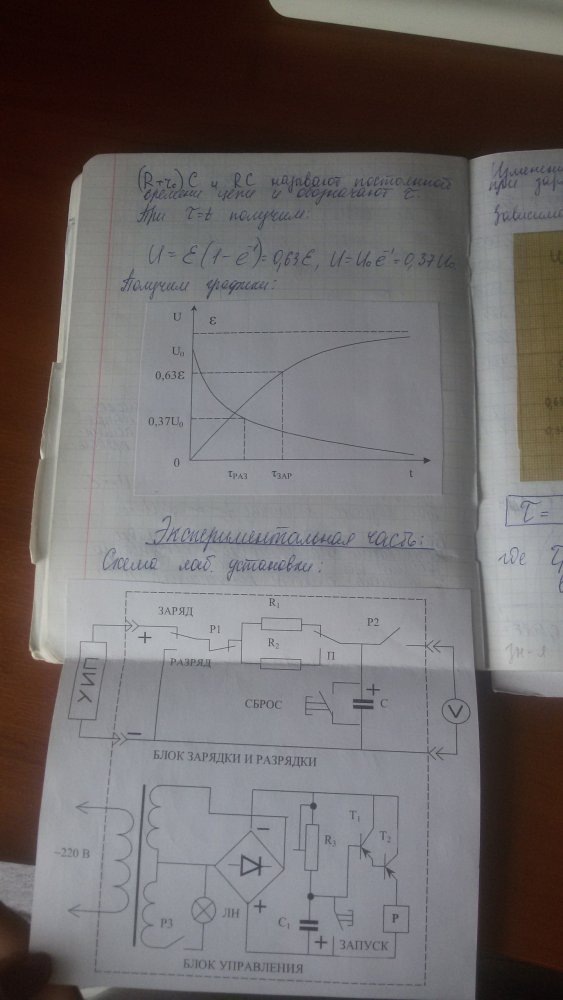 (R+r₀)C и RC называют постоянной
времени цепи и обозначают τ.
При τ=t получим:
U = ε(1-e⁻¹)=0,63ε, U=U₀e⁻¹=0,37U₀
Получим графики:
U ε
U₀
0,63ε
0,37U₀
0 τРАЗ τЗАР t
Экспериментальная часть:
Схема лаб. установки:
ЗАРЯД
R₁
P1
P2
+
R₂
РАЗРЯД
П
ИП
СБРОС
+
C
V
–
БЛОК ЗАРЯДКИ И РАЗРЯДКИ
~220 В
–
R₃
T₁
T₂
P3
ЛН
+
C₁
+
ЗАПУСК
P
БЛОК УПРАВЛЕНИЯ
при зар
Зависимо
τ =
где